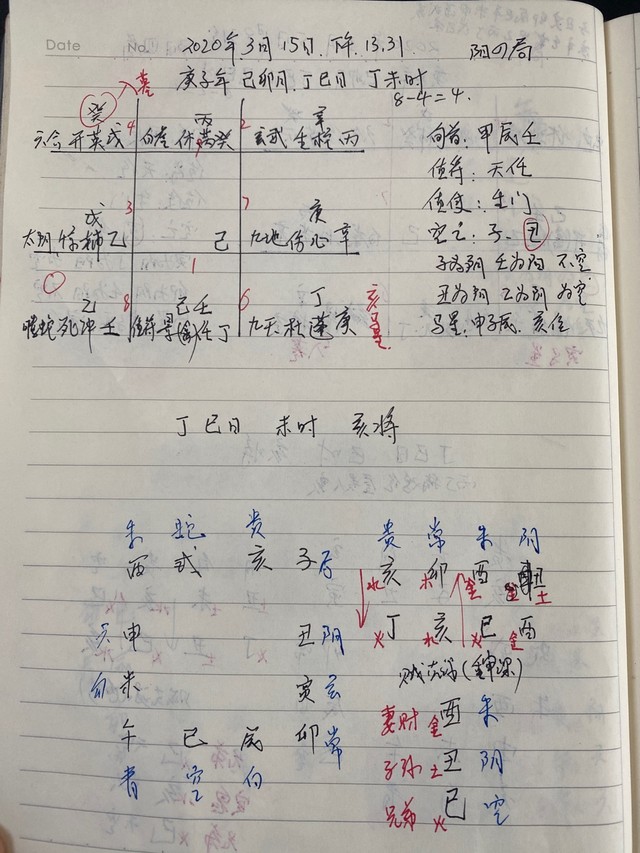 Date No. 2020年3月15日.下午.13.31 阳四局
庚子年 己卯月 丁巳日 丁未时
8-4=4.
入墓
癸 丙 辛
4 9 2
六合 开英戊 白虎 休芮癸 玄武 生柱丙
旬首:甲辰壬
值符:天任
值使:生门
空亡:子、丑
戊 庚
3 7
太阴 惊辅乙 己 九地 伤心辛
子为阳 壬为阳 不空
丑为阴 乙为阴 为空
马星:申子辰.亥位
乙 己壬 丁
8 1 6
螣蛇死冲壬 值符景(禽)任丁 九天杜蓬庚
亥马星
丁巳日 未时 亥将
朱 蛇 贵
酉 戌 亥 子后
六申 丑阴
勾未 寅玄
午 巳 辰 卯常
青 空 白
贵 常 朱 阴
亥 卯 酉 丑
水 木 金 土
丁 亥 巳 酉
火 水 火 金
妻财 金酉 朱
子孙 土丑 阴
兄弟 火巳 空